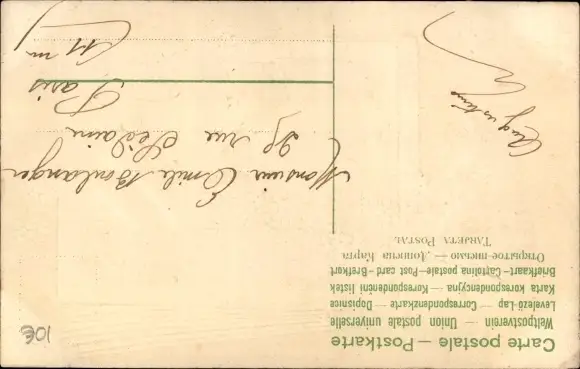 Carte postale – Postkarte
Weltpostverein — Union postale universelle
Levelező-Lap — Correspondenzkarte — Dopisnice
Karta korespondencyjna — Korespondenční lístek
Briefkaart – Cartolina postale – Post card – Brefkort
Открытое письмо —
TARJETA POSTAL
Augustine
Monsieur Emile Boulanger
rue Sedaine
Paris
10€